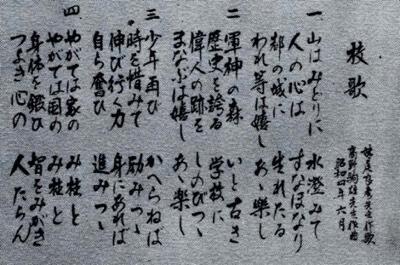 校歌
先生作歌
先生作曲
昭和四年六月
一 山はみどりに 水澄みて
人の心は すなほなり
都の城に 生れたる
われ等は嬉し あゝ楽し
二 軍神の森 いと古き
歴史を誇る 学校に
偉人の跡を しのびつゝ
まなぶは嬉し あゝ楽し
三 少年再び かへらねば
時を惜みて 励みつゝ
伸び行く力 身にあれば
自ら奮ひ 進みつゝ
四 やがては家の み柱と
やがては国の み柱と
身体を鍛ひ 智をみがき
つよき心の 人たらん